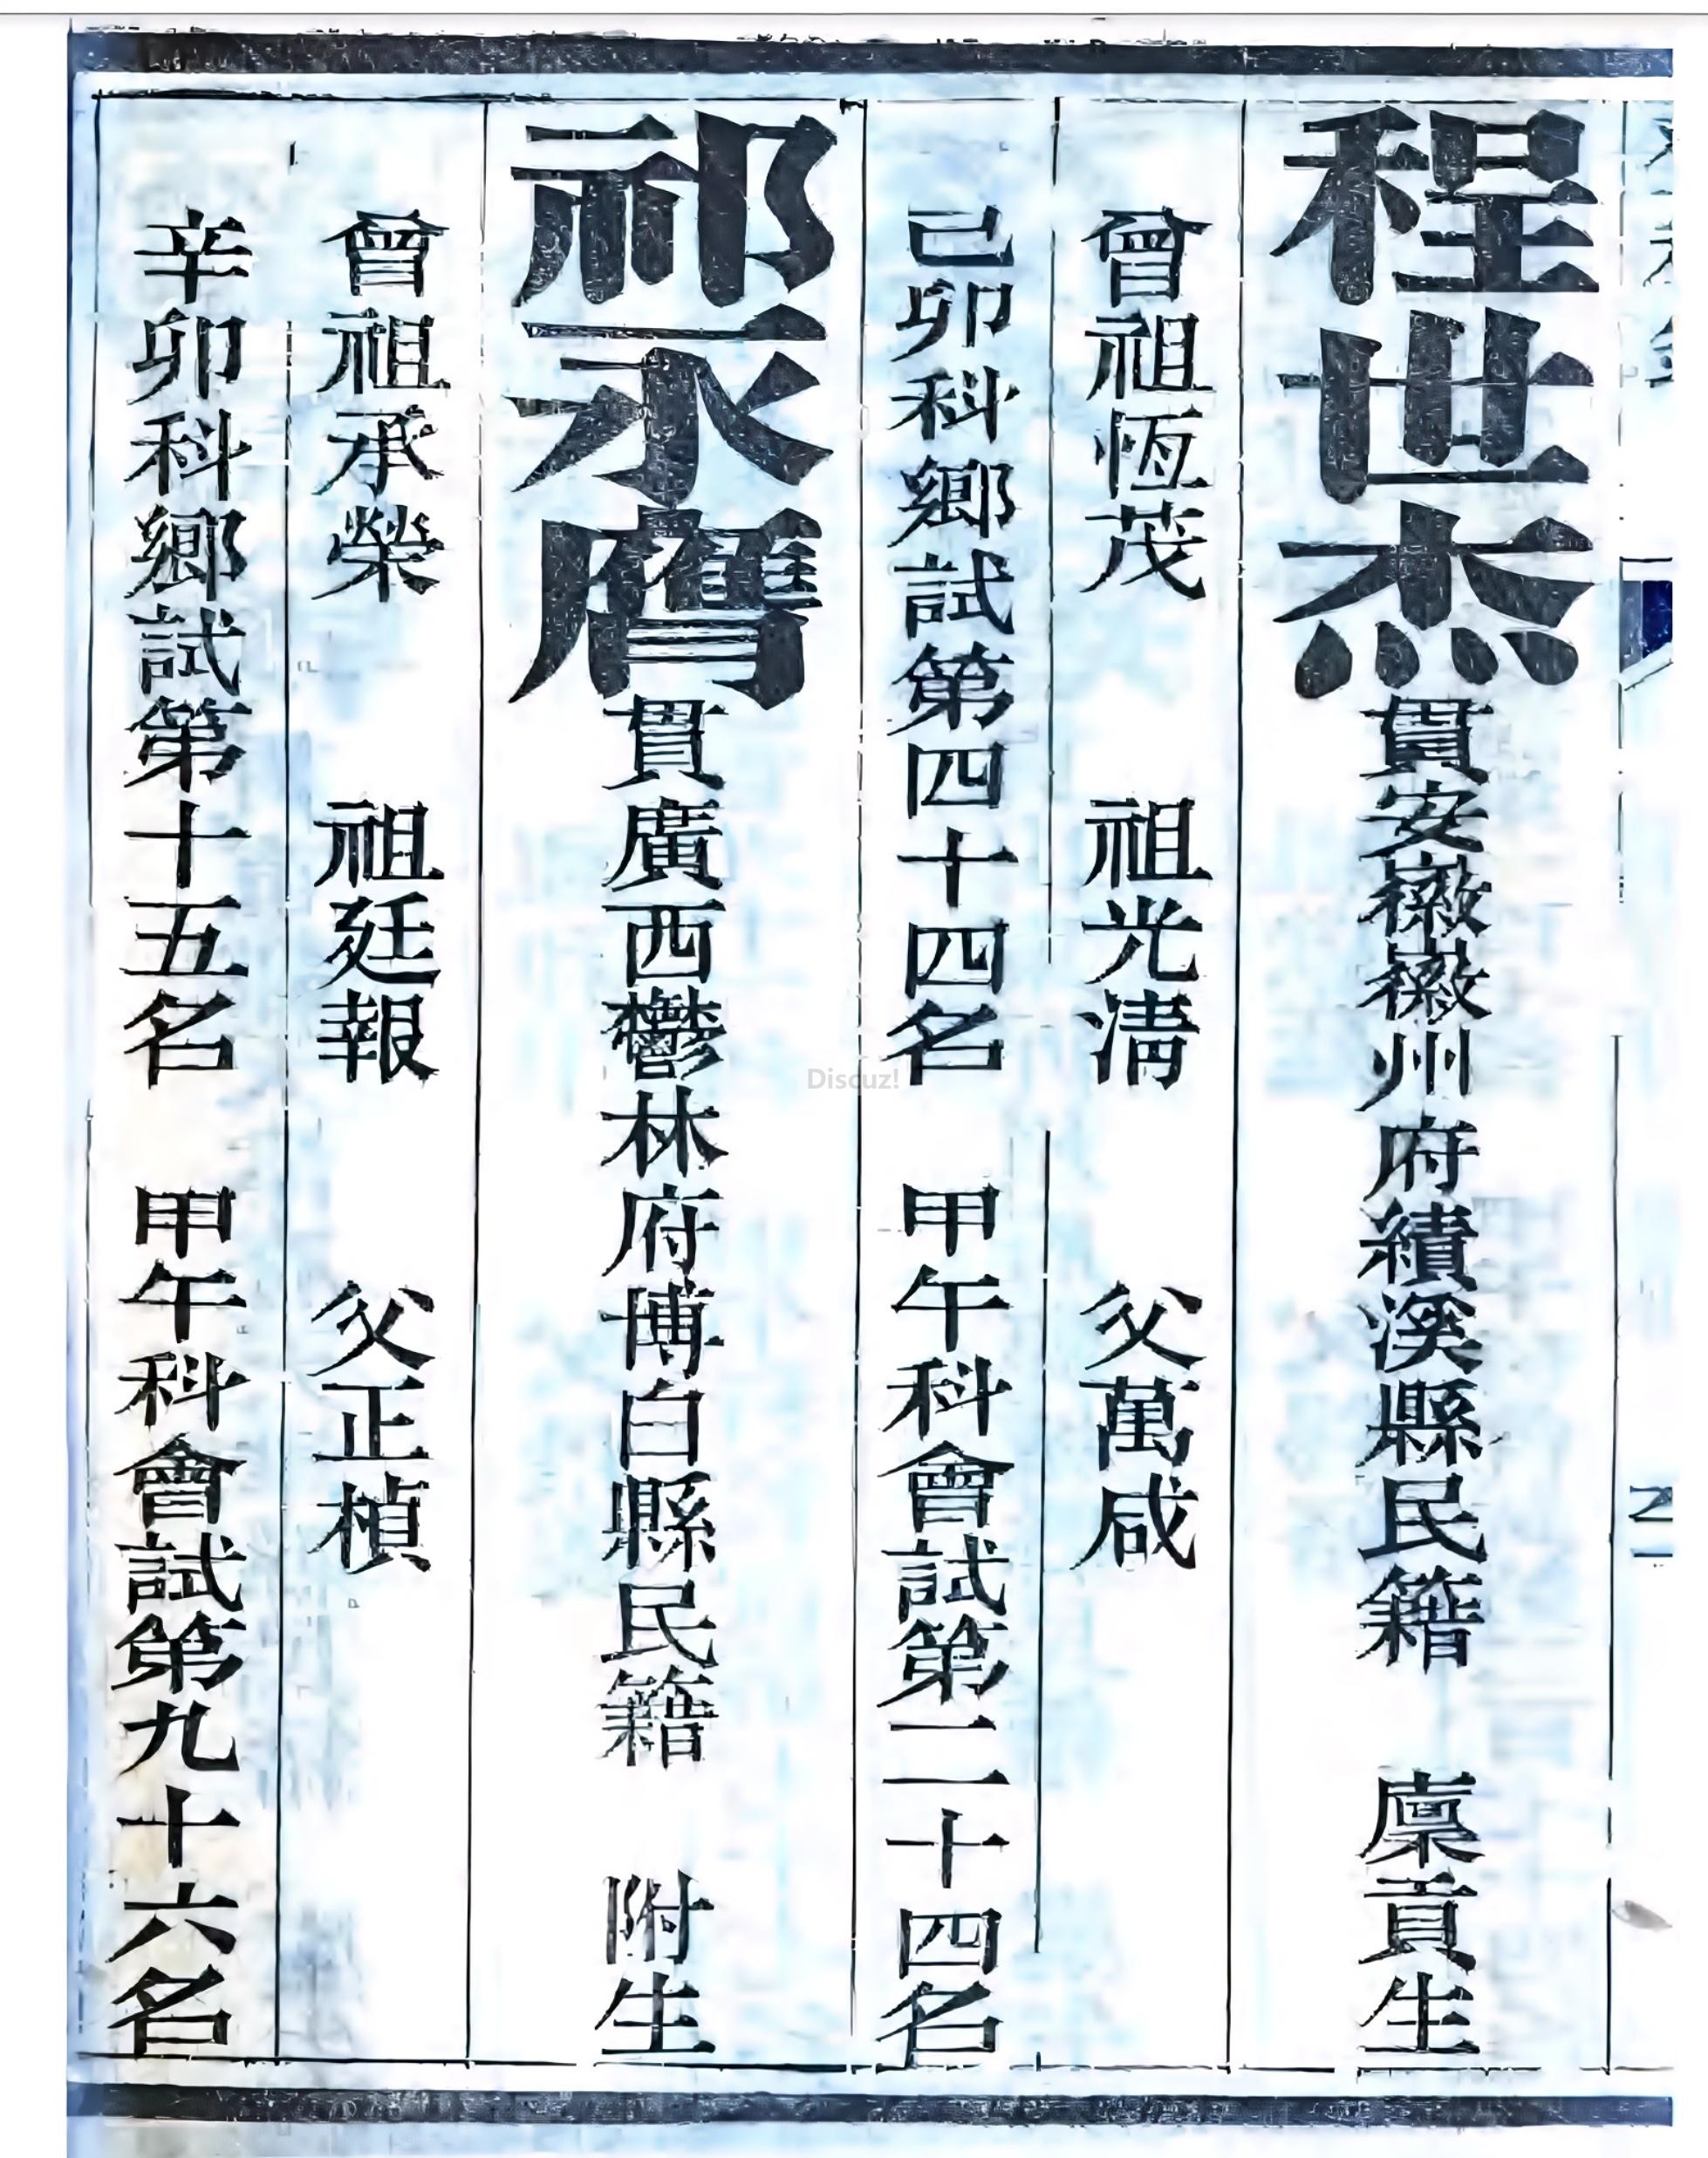 程世杰貫安徽徽州府績溪縣民籍 廩貢生
曾祖恆茂 祖光清 父萬咸
己卯科鄉試第四十四名 甲午科會試第二十四名
祁永膺貫廣西鬱林府博白縣民籍 附生
曾祖承榮 祖廷報 父正楨
辛卯科鄉試第十五名 甲午科會試第九十六名
Discuz!